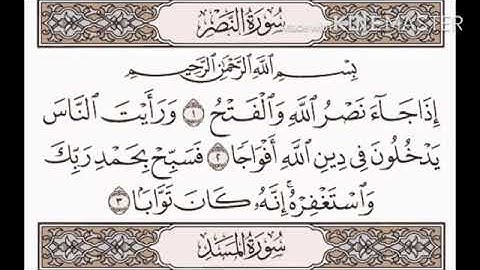 سُورَةُ النَّصْرِ
KINEMASTER
بِسْمِ ٱللَّهِ ٱلرَّحْمَٰنِ ٱلرَّحِيمِ
إِذَا جَآءَ نَصْرُ ٱللَّهِ وَٱلْفَتْحُ ١ وَرَأَيْتَ ٱلنَّاسَ
يَدْخُلُونَ فِى دِينِ ٱللَّهِ أَفْوَاجًا ٢ فَسَبِّحْ بِحَمْدِ رَبِّكَ
وَٱسْتَغْفِرْهُ ۚ إِنَّهُۥ كَانَ تَوَّابًۢا ٣
سُورَةُ المَسَدِ